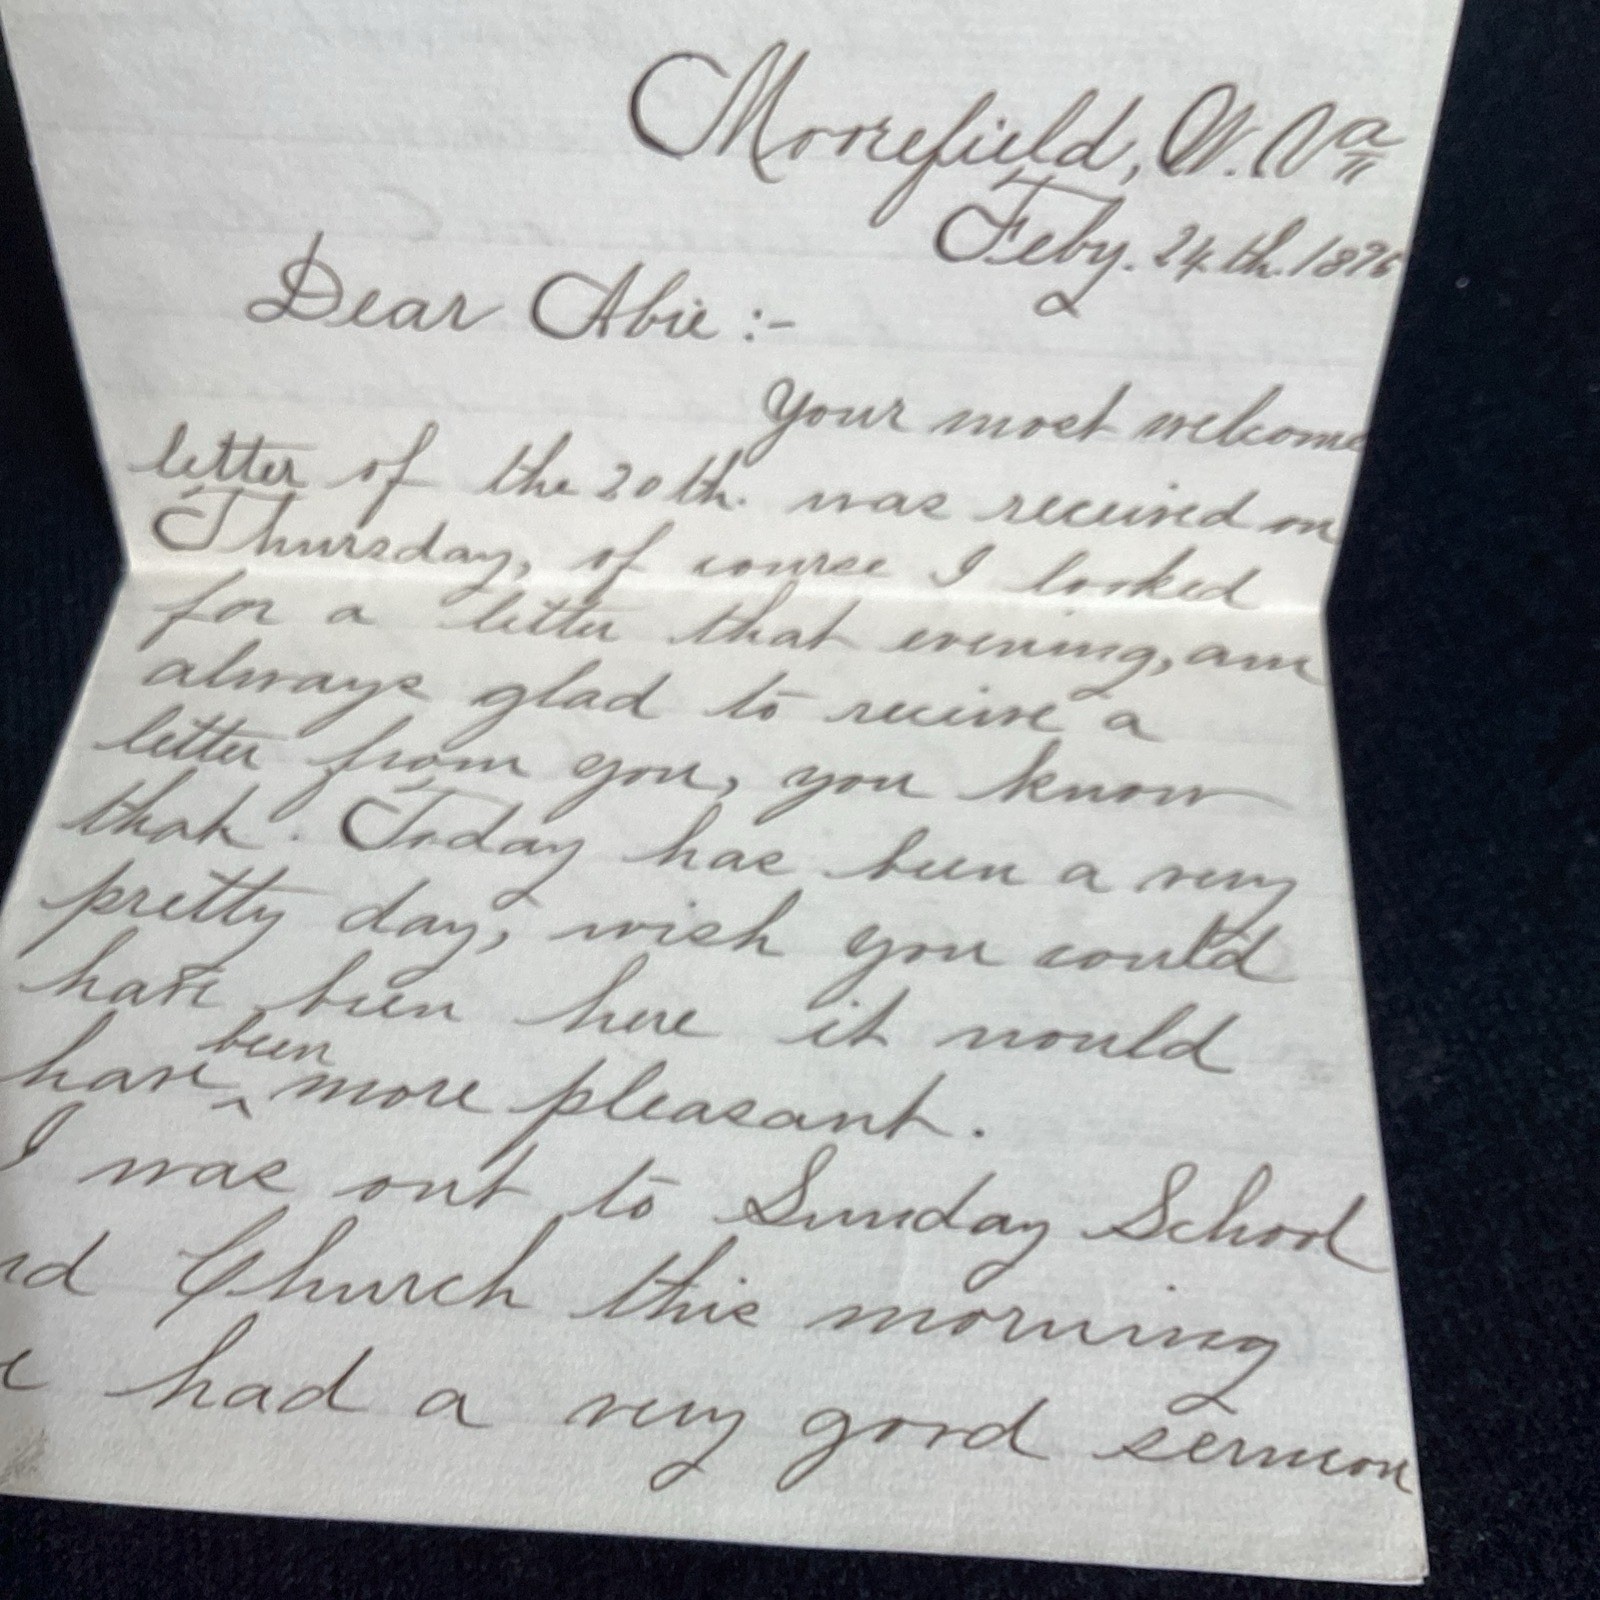 Moorefield, W. Va
Feby. 24th. 1896
Dear Abie :-
Your most welcome
letter of the 20th. was received on
Thursday, of course I looked
for a letter that evening, am
always glad to receive a
letter from you, you know
that. Today has been a very
pretty day, wish you could
have been here it would
have been more pleasant.
I was out to Sunday School
nd Church this morning
e had a very good sermon